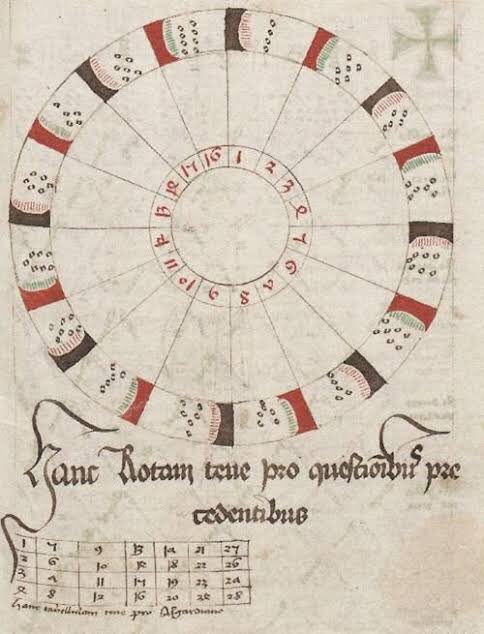 1 2 3 4 5 6 7 8 9 10 11 12 13 14 15 16
Hanc Rotam tene pro questiōibꝰ pre
cedentibus
1 5 9 13 17 21 25
2 6 10 14 18 22 26
3 7 11 15 19 23 27
4 8 12 16 20 24 28
hanc tene pro